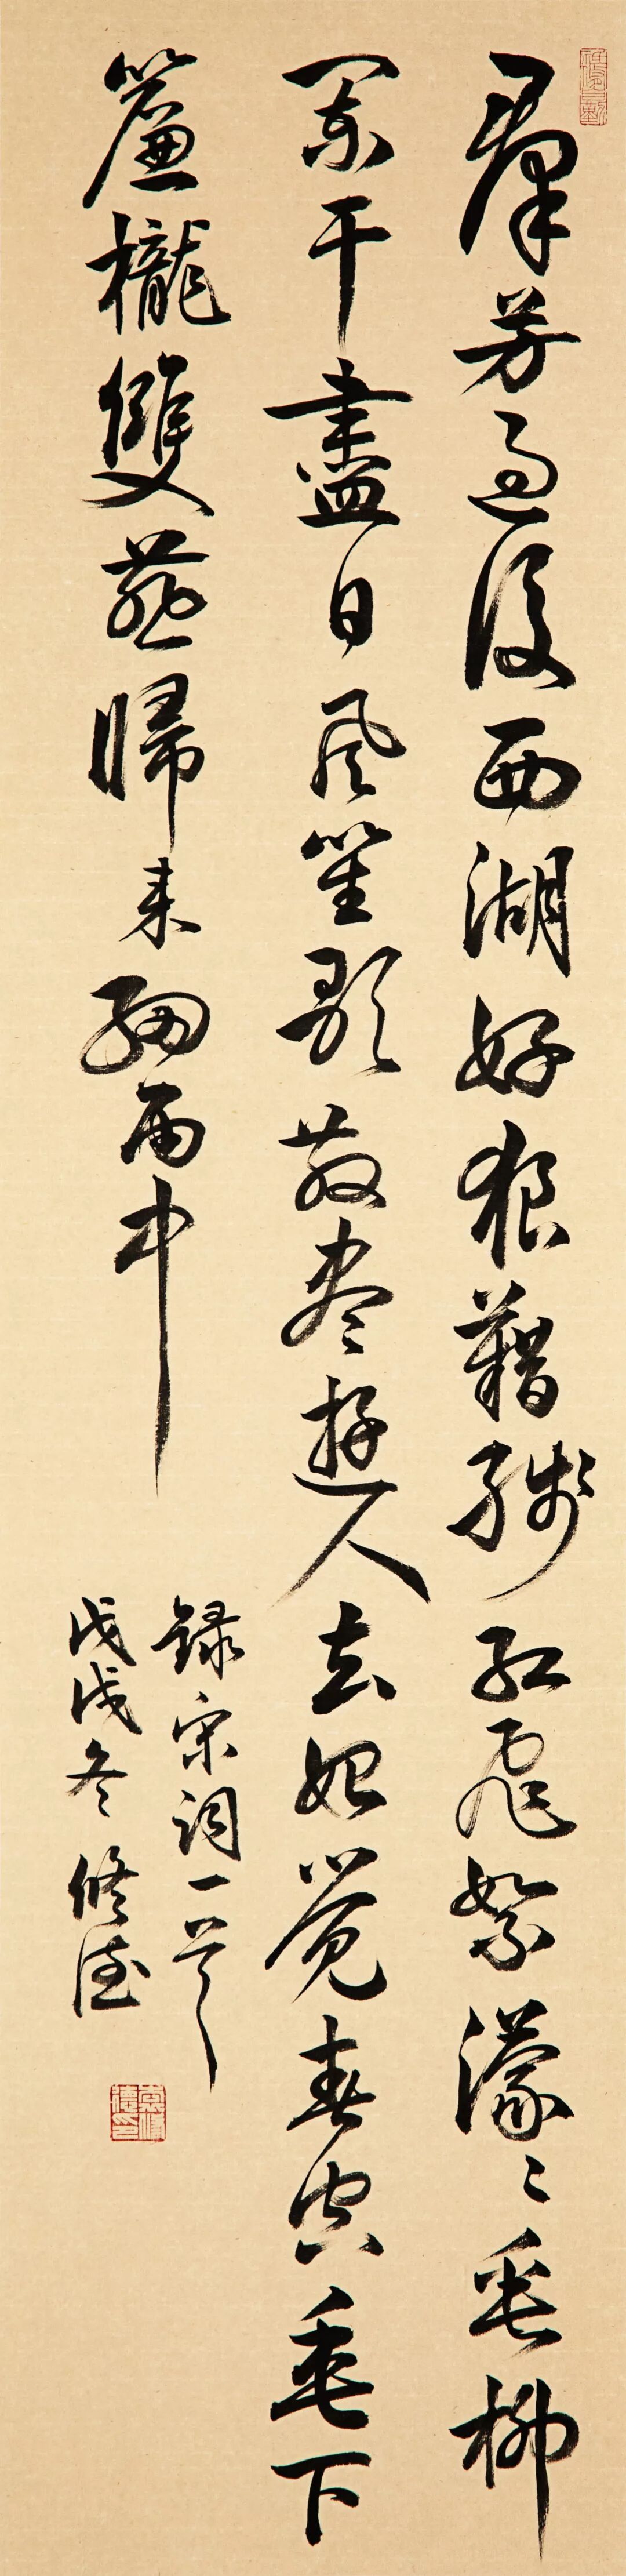 群芳過後西湖好狼藉殘紅飛絮濛々垂柳
闌干盡日風笙歌散尽遊人去始覺春空垂下
簾櫳雙燕歸來細雨中
録宋词一首
戊戌冬修德